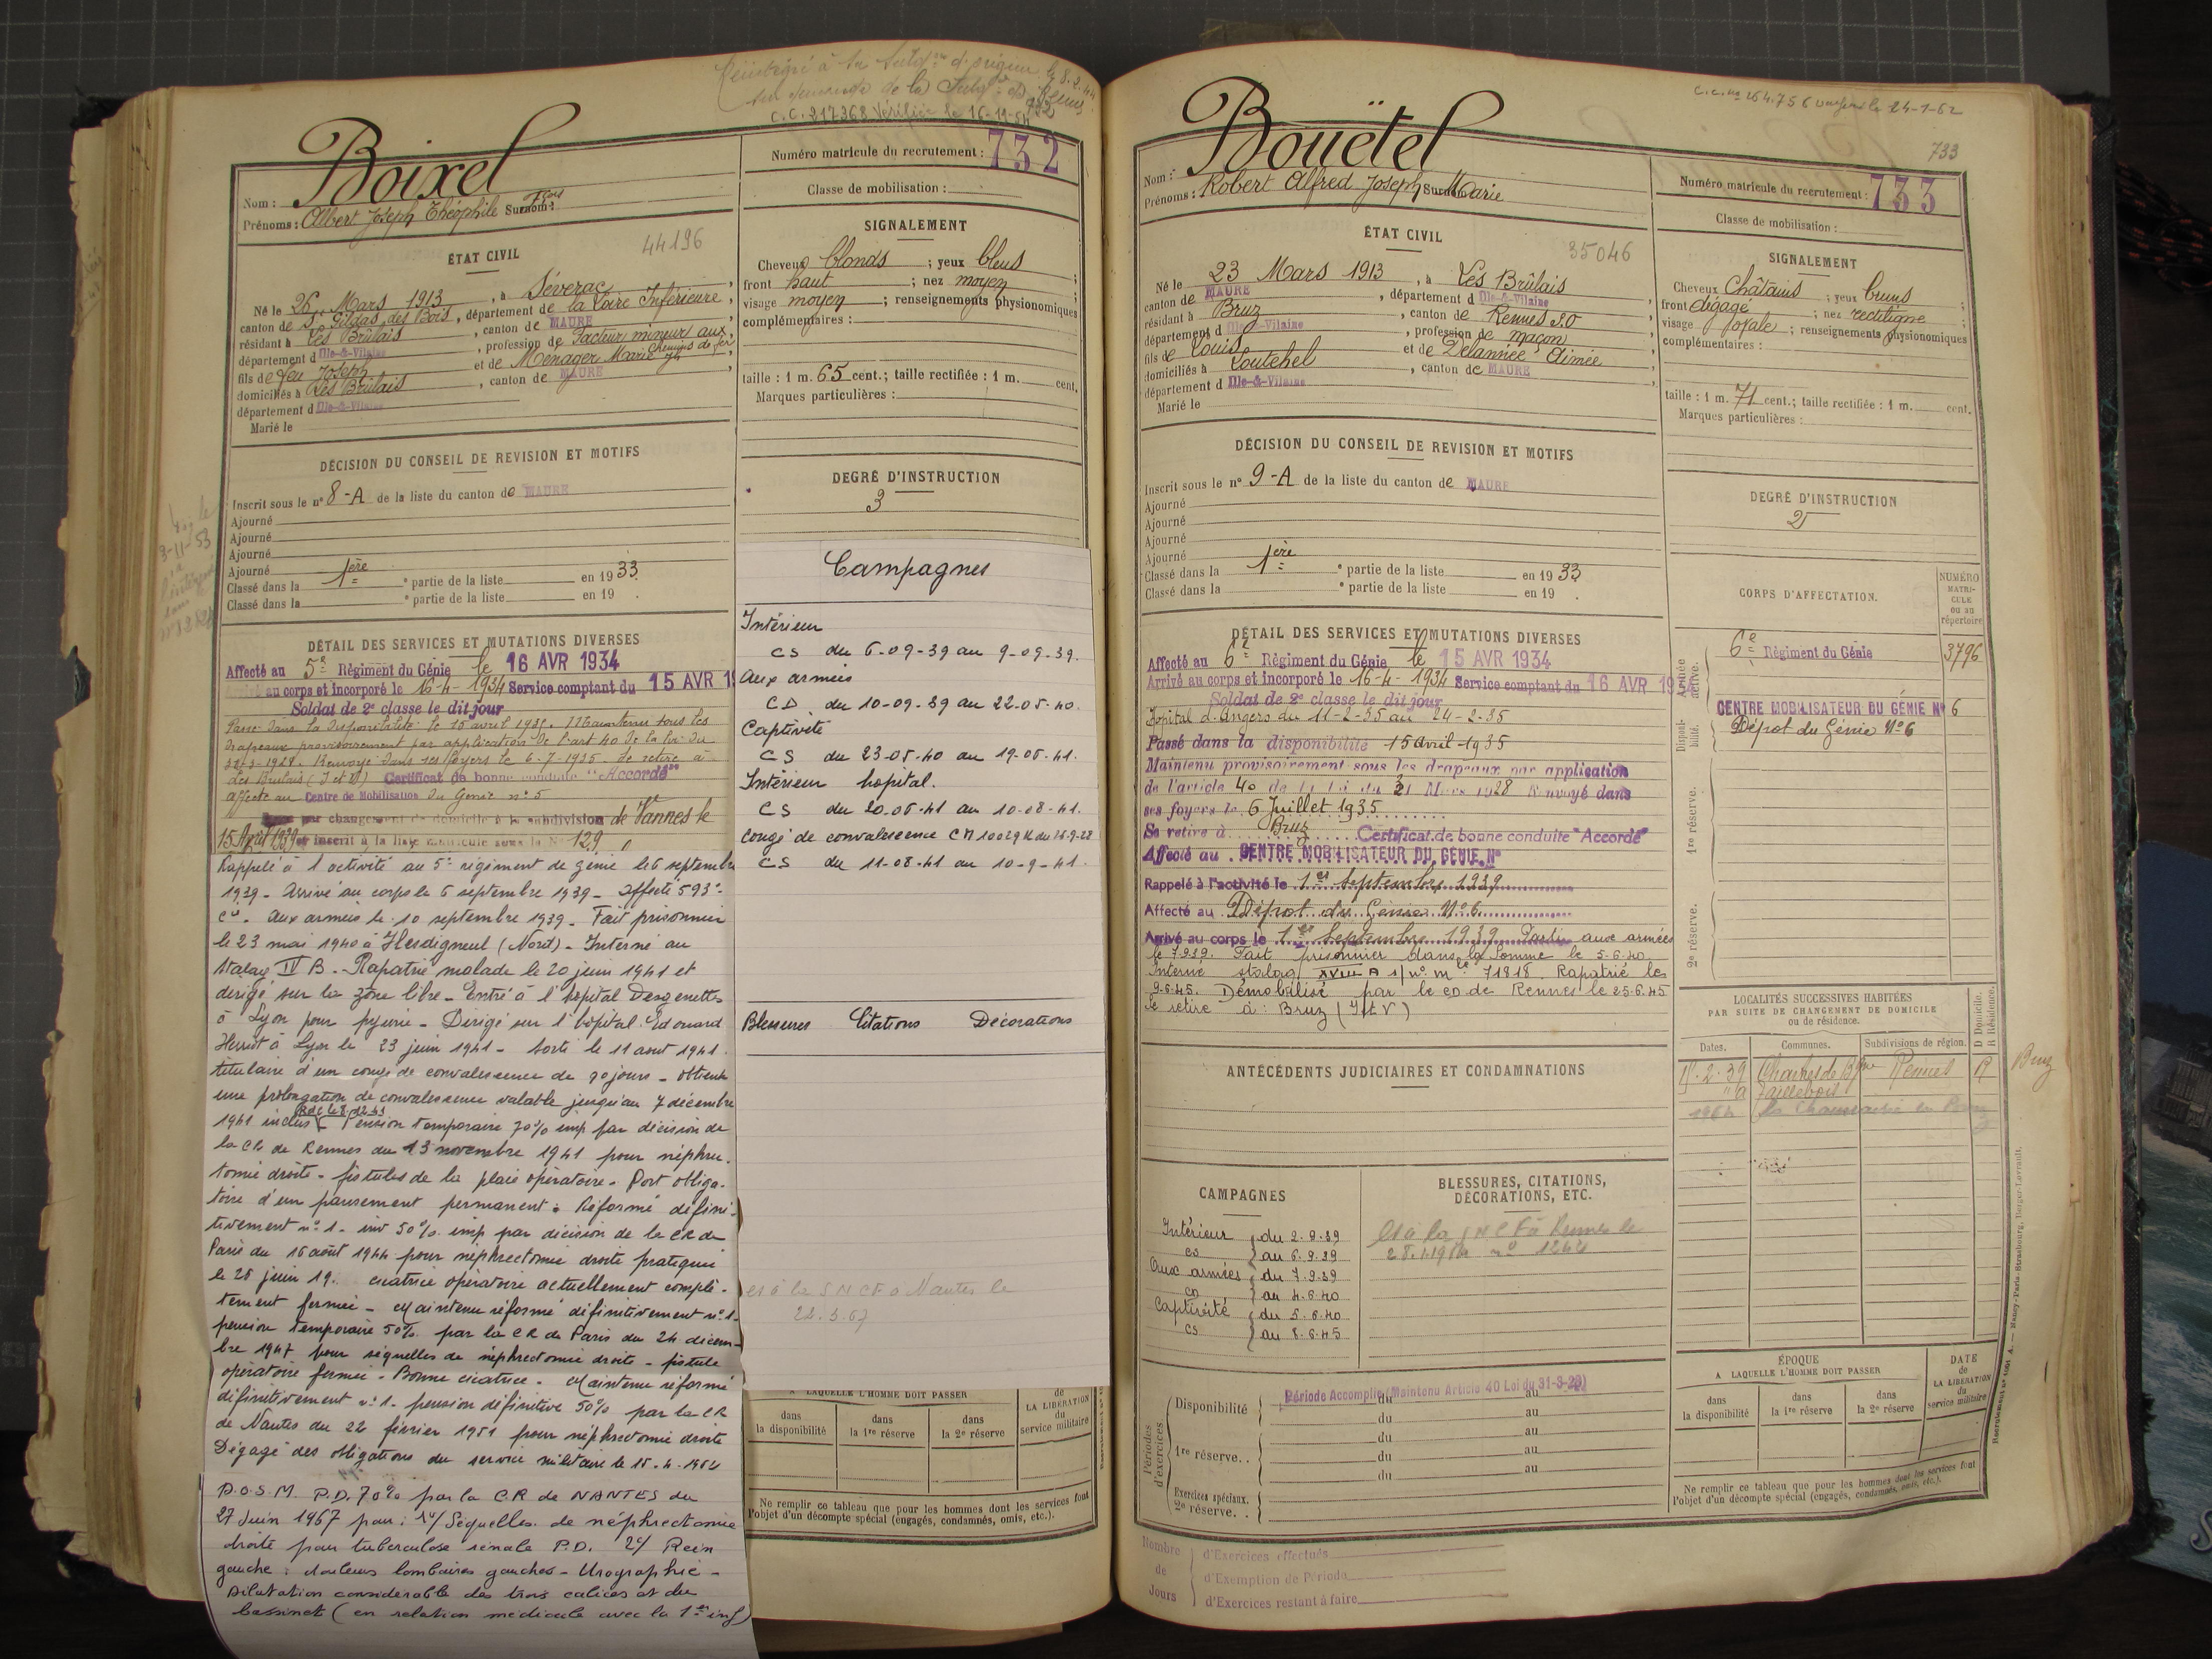 Réintégré à la Subd.on d'origine le 8.2.44
sur demande de la Subd.on de Rennes
C.C. 217368 Vérifié le 16-11-54
732
Boixel
Nom :
Prénoms : Albert Joseph Théophile Surnom : Fçois
Numéro matricule du recrutement : 732
Classe de mobilisation :
ÉTAT CIVIL
44196
Né le 26 Mars 1913, à Séverac,
canton de St Gildas des Bois, département de la Loire Inférieure,
résidant à Les Brûlais, canton de MAURE,
département d Ille-&-Vilaine, profession de Facteur mineur aux chemins de fer,
fils de feu Joseph et de Menager Marie
domiciliés à Les Brûlais, canton de MAURE,
département d Ille-&-Vilaine
Marié le
SIGNALEMENT
Cheveux blonds ; yeux bleus ;
front haut ; nez moyen ;
visage moyen ; renseignements physionomiques
complémentaires :
taille : 1 m. 65 cent.; taille rectifiée : 1 m. cent.
Marques particulières :
DÉCISION DU CONSEIL DE REVISION ET MOTIFS
Inscrit sous le nº 8-A de la liste du canton de MAURE
Ajourné
Ajourné
Ajourné
Ajourné
Classé dans la 1ère e partie de la liste en 1933.
Classé dans la e partie de la liste en 19 .
DEGRÉ D'INSTRUCTION
3
DÉTAIL DES SERVICES ET MUTATIONS DIVERSES
Affecté au 5e Régiment du Génie le 16 AVR 1934
au corps et incorporé le 16-4-1934 Service comptant du 15 AVR 19
Soldat de 2e classe le dit jour
Passé dans la disponibilité le 15 avril 1935. Maintenu sous les
drapeaux provisoirement par application de l'art 40 de la loi du
31-3-1928. Renvoyé dans ses foyers le 6-7-1935. Se retire à
Les Brulais (I et V) Certificat de bonne conduite "Accordé"
affecté au Centre de Mobilisation du Génie nº 5
par changement de domicile à la subdivision de Vannes le
15 Août 1939 et inscrit à la liste matricule sous le Nº 129
Rappelé à l'activité au 5e régiment de génie le 6 septembre
1939 - Arrivé au corps le 6 septembre 1939 - affecté 593e
Cie. Aux armées le 10 septembre 1939 - Fait prisonnier
le 23 mai 1940 à Hesdigneul (Nord) - Interné au
stalag IV B - Rapatrié malade le 20 juin 1941 et
dirigé sur la zone libre - Entré à l'hôpital Desgenettes
à Lyon pour pyurie - Dirigé sur l'hôpital Edouard
Herriot à Lyon le 23 juin 1941 - sorti le 11 aout 1941
titulaire d'un congé de convalescence de 90 jours - obtient
une prolongation de convalescence valable jusqu'au 7 décembre
RdC le 8.12.41
1941 inclus Pension temporaire 70% imp par décision de
la CR de Rennes du 13 novembre 1941 pour néphrec-
tomie droite - fistules de la plaie opératoire - Port obliga-
toire d'un pansement permanent. Réformé défini-
tivement nº 1 - inv 50% imp par décision de la CR de
Paris du 16 août 1944 pour néphrectomie droite pratiquée
le 25 juin 19.. cicatrice opératoire actuellement complè-
tement fermée - Maintenu réformé définitivement nº 1 -
pension temporaire 50% par la CR de Paris du 24 décem-
bre 1947 pour séquelles de néphrectomie droite - fistule
opératoire fermée - Bonne cicatrice - Maintenu réformé
définitivement nº 1 - pension définitive 50% par la CR
de Nantes du 22 février 1951 pour néphrectomie droite
Dégagé des obligations du service militaire le 15.4.1962
D.O.S.M. P.D. 70% par la C.R de NANTES du
27 Juin 1967 pour : 1º/ Séquelles de néphrectomie
droite pour tuberculose rénale P.D. 2º/ Rein
gauche : douleurs lombaires gauches - Urographie -
Dilatation considérable des trois calices et du
bassinet (en relation médicale avec la 1ère inf)
Campagnes
Intérieur
CS du 6-09-39 au 9-09-39.
Aux armées
CD du 10-09-39 au 22-05-40.
Captivité
CS du 23-05-40 au 19-06-41.
Intérieur hôpital.
CS du 20-06-41 au 10-08-41.
Congé de convalescence CM 10029 K du 26-9-28
CS du 11-08-41 au 10-9-41.
Blessures Citations Décorations
est à la SNCF à Nantes le
22.3.67
A LAQUELLE L'HOMME DOIT PASSER
dans la disponibilité
dans la 1re réserve
dans la 2e réserve
de LA LIBÉRATION du service militaire
Ne remplir ce tableau que pour les hommes dont les services font
l'objet d'un décompte spécial (engagés, condamnés, omis, etc.).
C.C. nº 264.756 le 24-1-62
733
Bouëtel
Nom :
Prénoms : Robert Alfred Joseph Surnom : Marie
Numéro matricule du recrutement : 733
Classe de mobilisation :
ÉTAT CIVIL
35046
Né le 23 Mars 1913, à Les Brûlais
canton de MAURE, département d Ille-&-Vilaine
résidant à Bruz, canton de Rennes S.O
département d Ille-&-Vilaine, profession de maçon
fils de Louis et de Delannée Aimée
domiciliés à Loutehel, canton de MAURE
département d Ille-&-Vilaine
Marié le
SIGNALEMENT
Cheveux Châtains ; yeux bruns ;
front dégagé ; nez rectiligne ;
visage ovale ; renseignements physionomiques
complémentaires :
taille : 1 m. 71 cent.; taille rectifiée : 1 m. cent.
Marques particulières :
DÉCISION DU CONSEIL DE REVISION ET MOTIFS
Inscrit sous le nº 9-A de la liste du canton de MAURE
Ajourné
Ajourné
Ajourné
Ajourné
Classé dans la 1ère e partie de la liste en 1933
Classé dans la e partie de la liste en 19 .
DEGRÉ D'INSTRUCTION
2
DÉTAIL DES SERVICES ET MUTATIONS DIVERSES
Affecté au 6e Régiment du Génie le 15 AVR 1934
Arrivé au corps et incorporé le 16-4-1934 Service comptant du 16 AVR 1934
Soldat de 2e classe le dit jour
Hopital d'Angers du 11-2-35 au 24-2-35
Passé dans la disponibilité 15 avril 1935
Maintenu provisoirement sous les drapeaux par application
de l'article 40 de la loi du 31 Mars 1928 Renvoyé dans
ses foyers le 6 Juillet 1935
Se retire à Bruz Certificat de bonne conduite "Accordé"
Affecté au CENTRE MOBILISATEUR DU GÉNIE Nº
Rappelé à l'activité le 1er Septembre 1939
Affecté au Dépôt du Génie Nº 6
Arrivé au corps le 1er Septembre 1939 Parti aux armées
le 7.9.39. Fait prisonnier dans la Somme le 5-6-40.
Interné stalag XVII A s/ nº mle 71818. Rapatrié le
9-6-45. Démobilisé par le CD de Rennes le 25.6.45
se retire à : Bruz (I et V)
ANTÉCÉDENTS JUDICIAIRES ET CONDAMNATIONS
CORPS D'AFFECTATION.
NUMÉRO MATRI-CULE ou au répertoire
Armée active.
6e Régiment du Génie 3796
Disponibilité.
CENTRE MOBILISATEUR DU GÉNIE Nº 6
Dépôt du Génie Nº 6
1re réserve.
2e réserve.
LOCALITÉS SUCCESSIVES HABITÉES
PAR SUITE DE CHANGEMENT DE DOMICILE
ou de résidence.
Dates. Communes. Subdivisions de région. Domicile. Résidence.
Chartres de Bgne Rennes R
Bruz
CAMPAGNES
Intérieur du 2.9.39
CS au 6.9.39
Aux armées du 7.9.39
CD au 4.6.40
Captivité du 5.6.40
CS au 8.6.45
BLESSURES, CITATIONS,
DÉCORATIONS, ETC.
Est à la SNCF à Rennes le
Périodes d'exercices
Disponibilité
Période Accomplie (Maintenu Article 40 Loi du 31-3-28)
du au
du au
1re réserve..
du au
du au
du au
Exercices spéciaux.
2e réserve..
ÉPOQUE
A LAQUELLE L'HOMME DOIT PASSER
dans la disponibilité
dans la 1re réserve
dans la 2e réserve
DATE de LA LIBÉRATION du service militaire
Ne remplir ce tableau que pour les hommes dont les services font
l'objet d'un décompte spécial (engagés, condamnés, omis, etc.).
Nombre de Jours
d'Exercices effectués
d'Exemption de Période
d'Exercices restant à faire